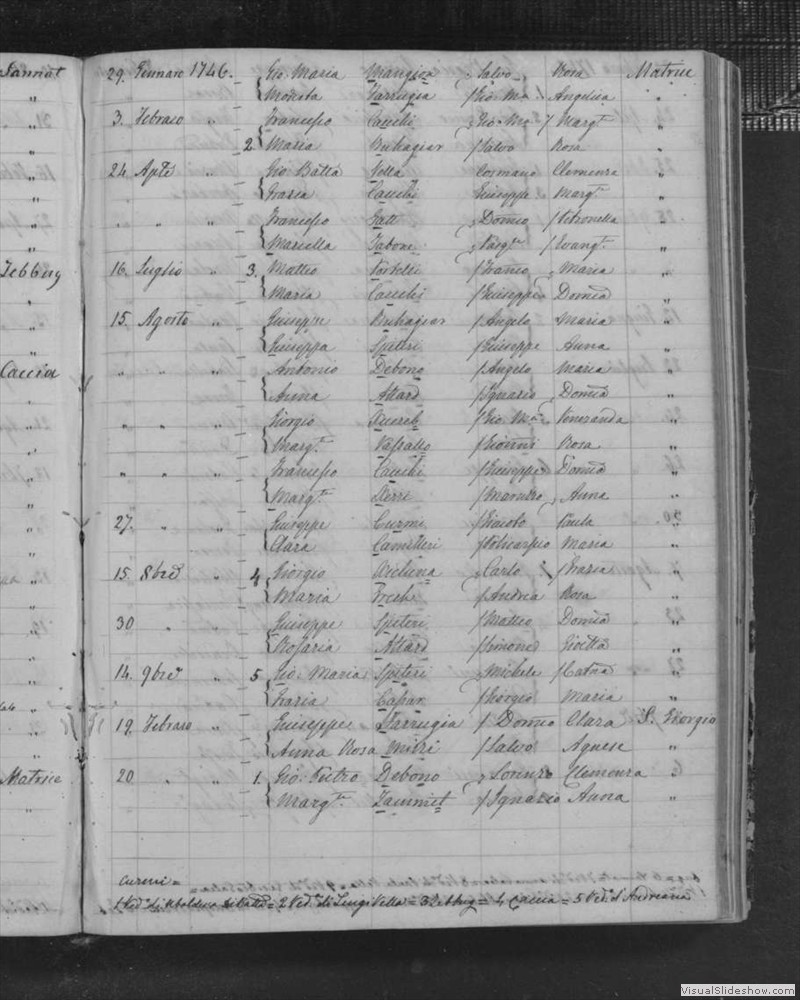 Sannat
29. Gennaro 1746. Gio: Maria Mangion Salvo Rosa Matrice
Modesta Farrugia Gio: Ma: Angelica "
3. Febraro " Francesco Cauchi Gio: Ma: Margta "
2. Maria Buhagiar Salvo Rosa "
24. Aple " Gio: Batta Vella Cormano Clemenza "
Grazia Cauchi Giuseppe Margta "
" " " Francesco Gatt Domco Petronella "
Mariella Tabone Evangta "
Zebbug
16. Luglio " 3. Matteo Portelli Franco Maria "
Maria Cauchi Giuseppe Domca "
15. Agosto " Giuseppe Buhagiar Angelo Maria "
Giuseppa Spiteri Giuseppe Anna "
Caccia
" " " Antonio Debono Angelo Maria "
Anna Attard Ignazio Domca "
" " " Giorgio Xuereb Gio: Ma: Veneranda "
Margta Vassallo Gionni Rosa "
" " " Francesco Cauchi Giuseppe Domca "
Margta Xerri Anna "
27. " " Giuseppe Curmi Paola "
Clara Camilleri Policarpio Maria "
15. 8bre " 4. Giorgio Xicluna Carlo Grazia "
Maria Andrea Rosa "
30 " " Giuseppe Spiteri Matteo Domca "
Rosaria Attard Simone "
14. 9bre " 5. Gio: Maria Spiteri Michele Catna "
Grazia Giorgio Maria "
19. Febraro " Giuseppe Farrugia Domco Clara S. Giorgio
Anna Rosa Salvo Agnese "
Matrice
20 " " 1. Gio: Pietro Debono Lorenzo Clemenza "
Margta Tammit Ignazio Anna "
curmi =
= 2 Ved. di Luigi Vella = 3 Zebbug = 4 Caccia = 5 Ved. d'Andreana
VisualSlideshow.com